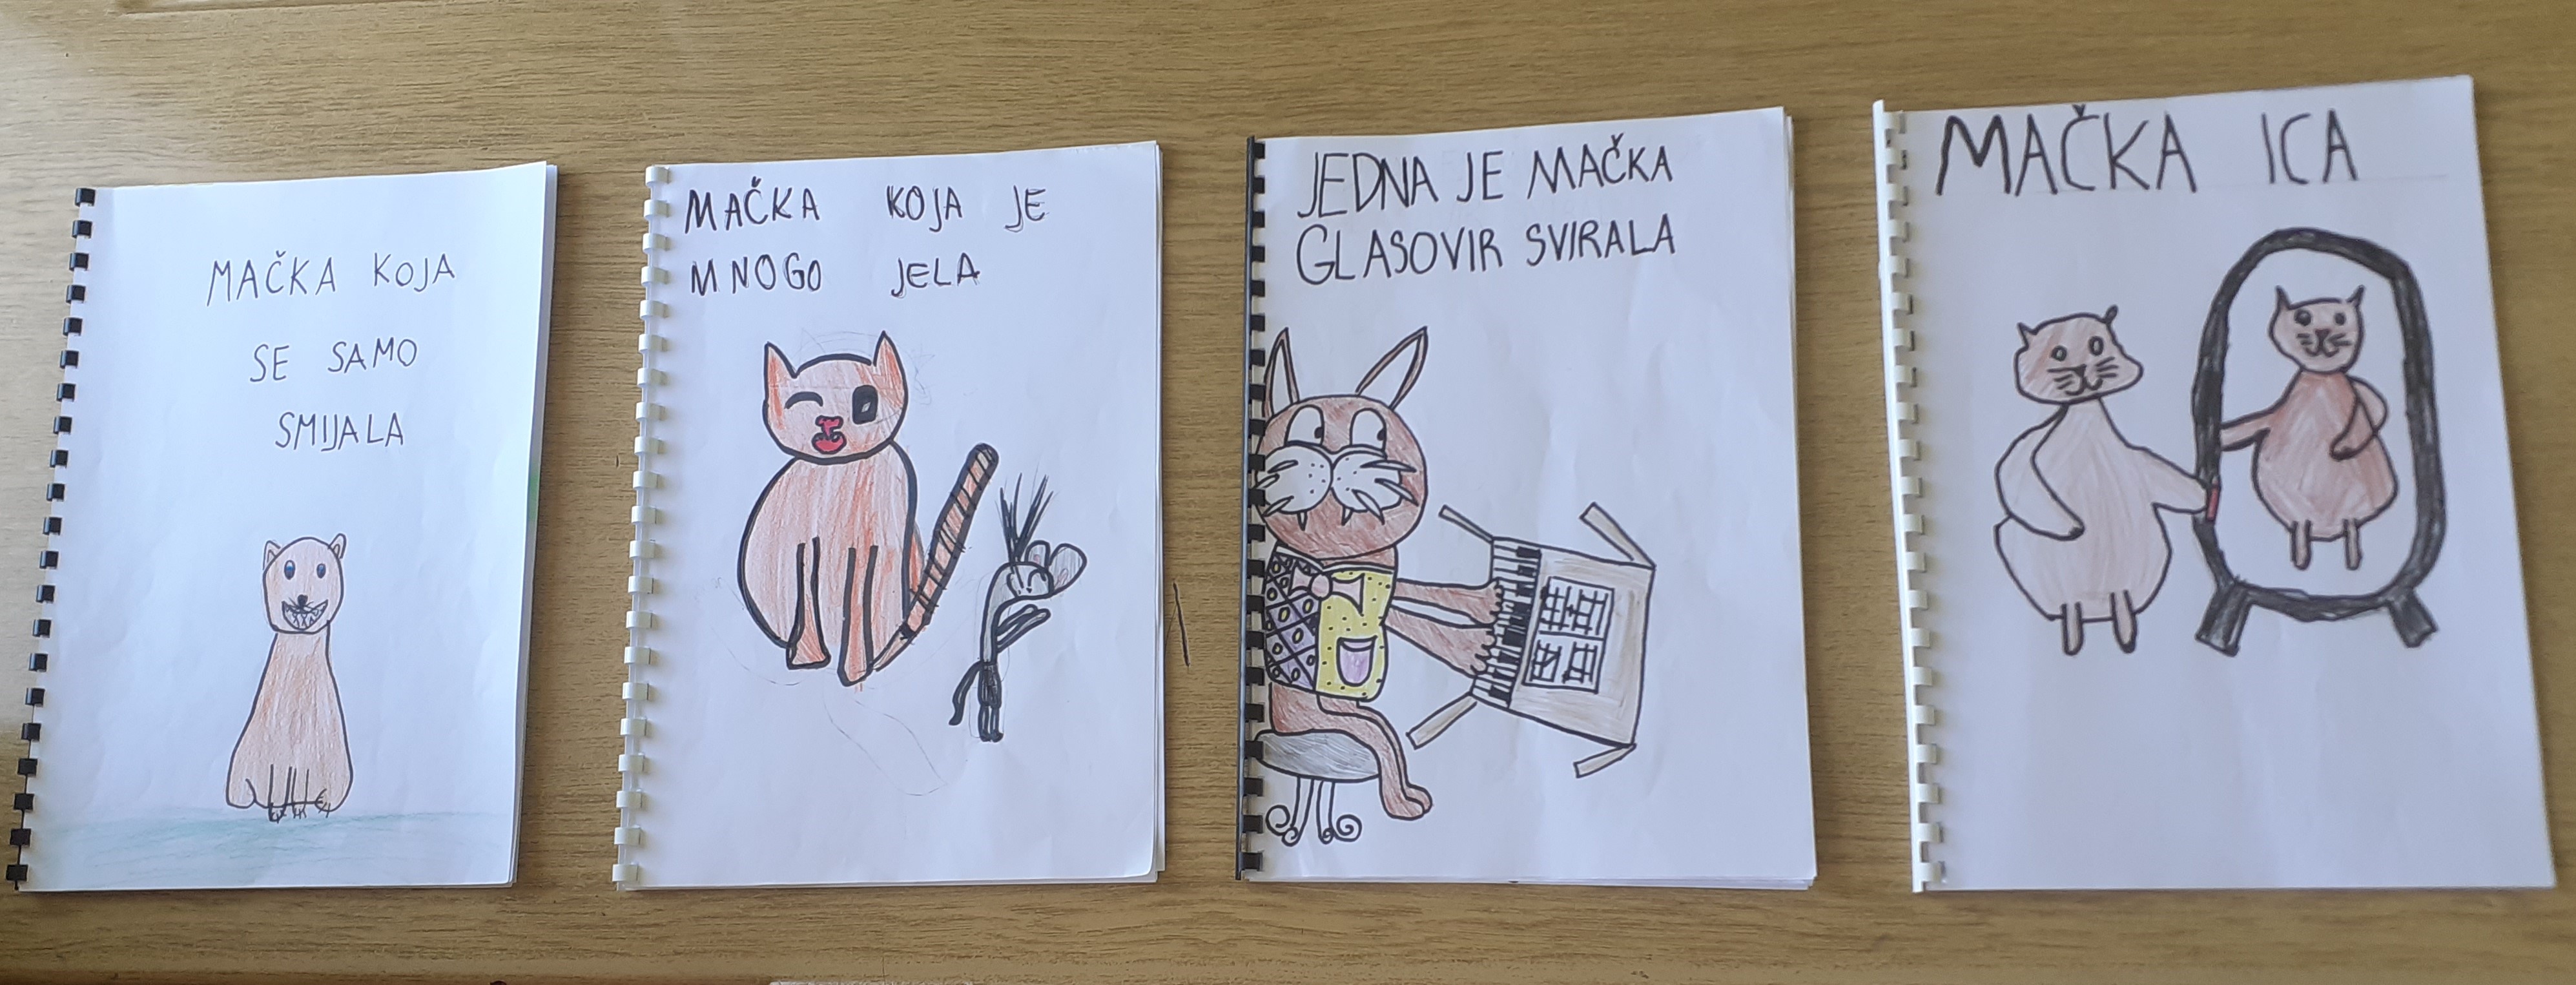 MAČKA KOJA
SE SAMO
SMIJALA
MAČKA KOJA JE
MNOGO JELA
JEDNA JE MAČKA
GLASOVIR SVIRALA
MAČKA ICA